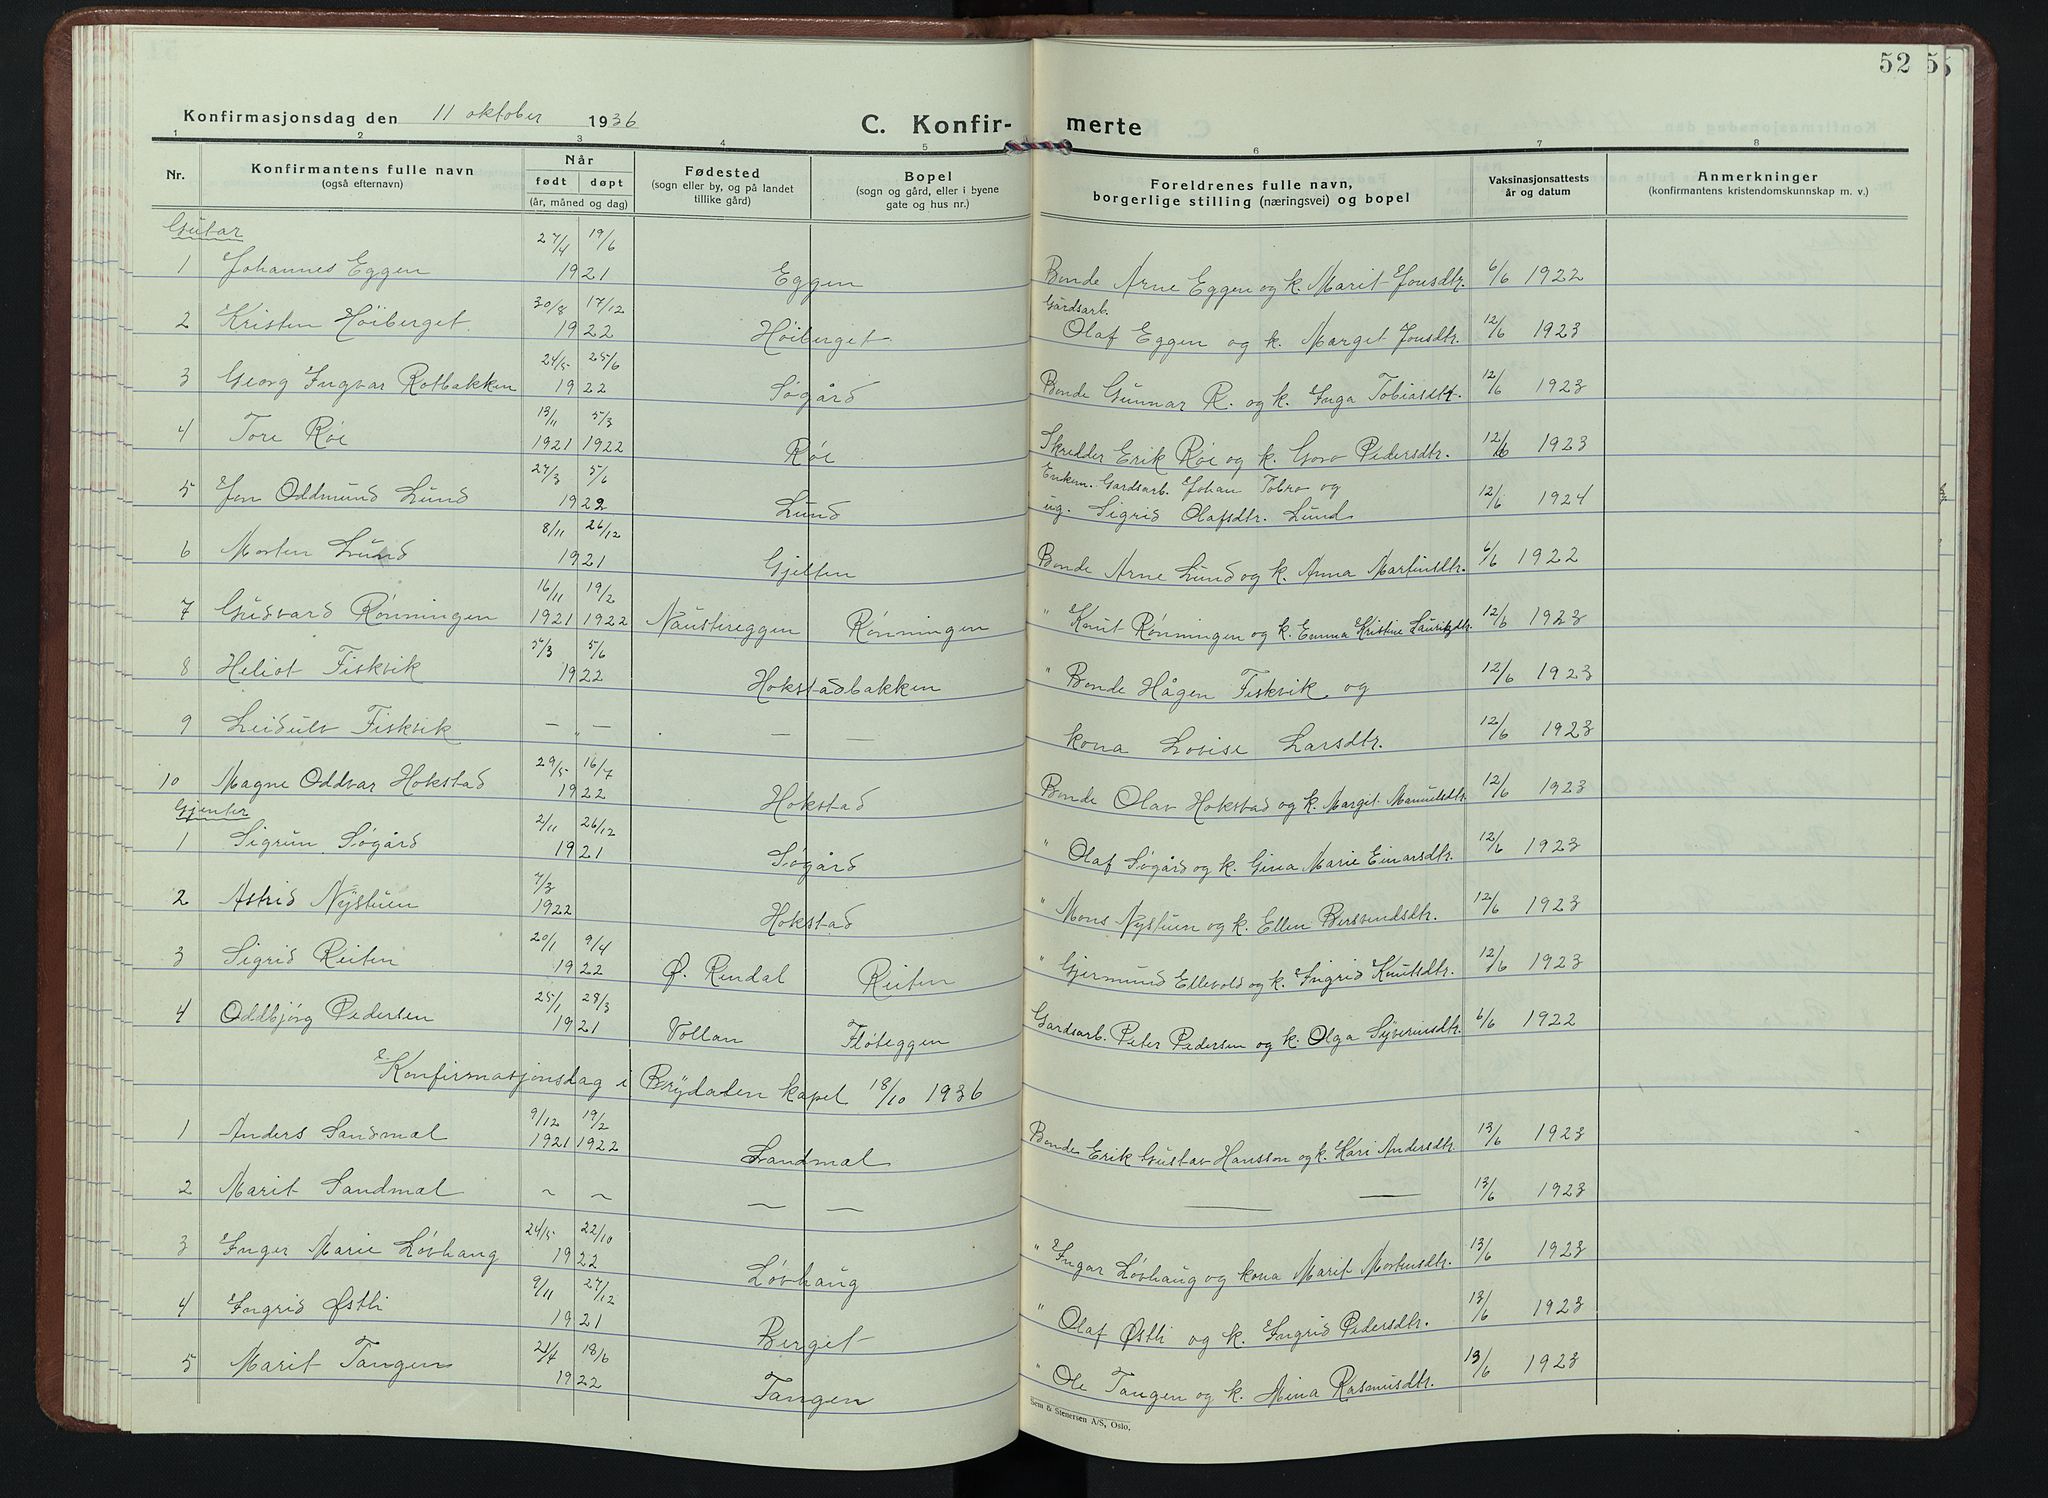 52
Konfirmasjonsdag den 11 oktober 1936 C. Konfir- merte
1 2 3 4 5 6 7 8
Nr. Konfirmantens fulle navn (også efternavn) Når født døpt (år, måned og dag) Fødested (sogn eller by, og på landet tillike gård) Bopel (sogn og gård, eller i byene gate og hus nr.) Foreldrenes fulle navn, borgerlige stilling (næringsvei) og bopel Vaksinasjonsattests år og datum Anmerkninger (konfirmantens kristendomskunnskap m. v.)
Gutar
1 Johannes Eggen 27/4 19/6 1921 Eggen Bonde Arne Eggen og k. Marit Jonsdtr. 6/6 1922
2 Kristen Höiberget. 30/8 17/12 1922 Höiberget Gårdsarb. Olaf Eggen og k. Marget Jonsdtr. 12/6 1923
3 Georg Ingvar Rotbakken 24/5 25/6 1922 Søgård Bonde Gunnar R. og k. Inga Tobiasdtr. 12/6 1923
4 Tore Røe 13/11 1921 5/3 1922 Røe Skredder Erik Røe og k. Goro Pedersdtr. 12/6 1923
5 Jon Oddmund Lund 27/3 5/6 1922 Lund Enkem. Gardsarb. Johan Tobro og ug. Sigrid Olafsdtr. Lund 12/6 1924
6 Morten Lund 8/11 26/12 1921 Gjelten Bonde Arne Lund og k. Anna Martinsdtr. 6/6 1922
7 Gudvard Rønningen 16/11 1921 19/2 1922 Naustereggen Rønningen " Knut Rønningen og k. Emma Kristine Lauritzdtr. 12/6 1923
8 Heliot Fiskvik 5/3 5/6 1922 Hokstadbakken " Bonde Hågen Fiskvik og 12/6 1923
9 Leidulv Fiskvik — " — — — kona Lovise Larsdtr. 12/6 1923
10 Magne Oddvar Hokstad 29/5 16/7 1922 Hokstad Bonde Olav Hokstad og k. Margit Manuelsdtr 12/6 1923
Gjenter
1 Sigrun Søgård 2/11 26/12 1921 Søgård " Olaf Søgård og k. Gina Marie Einarsdtr. 12/6 1923
2 Astrid Nystuen 7/3 1922 Hokstad " Mons Nystuen og k. Ellen Bersvendsdtr. 12/6 1923
3 Sigrid Reiten 20/1 9/4 1922 Ø. Rendal Reiten " Gjermund Ellevold og k. Ingrid Knutsdtr. 12/6 1923
4 Oddbjörg Pedersen 25/1 28/3 1921 Vollan Fløteggen Gardsarb. Peter Pedersen og k. Olga Syverinsdtr. 6/6 1922
Konfirmasjonsdag i Brydalen kapel 18/10 1936
1 Anders Sandmal 9/12 1921 19/2 1922 Sandmal Bonde Erik Gustav Hansson og k. Kari Andersdtr. 13/6 1923
2 Marit Sandmal ~ ~ — — — — 13/6 1923
3 Inger Marie Løvhaug 24/5 22/10 1922 Løvhaug " Ingar Løvhaug og kona Marit Mortensdtr. 13/6 1923
4 Ingrid Østli 9/11 27/12 1921 Berget " Olaf Østli og k. Ingrid Pedersdtr. 13/6 1923
5 Marit Tangen 18/6 1922 Tangen " Ole Tangen og k. Mina Rasmusdtr. 13/6 1923
Sem & Stenersen A/S, Oslo.